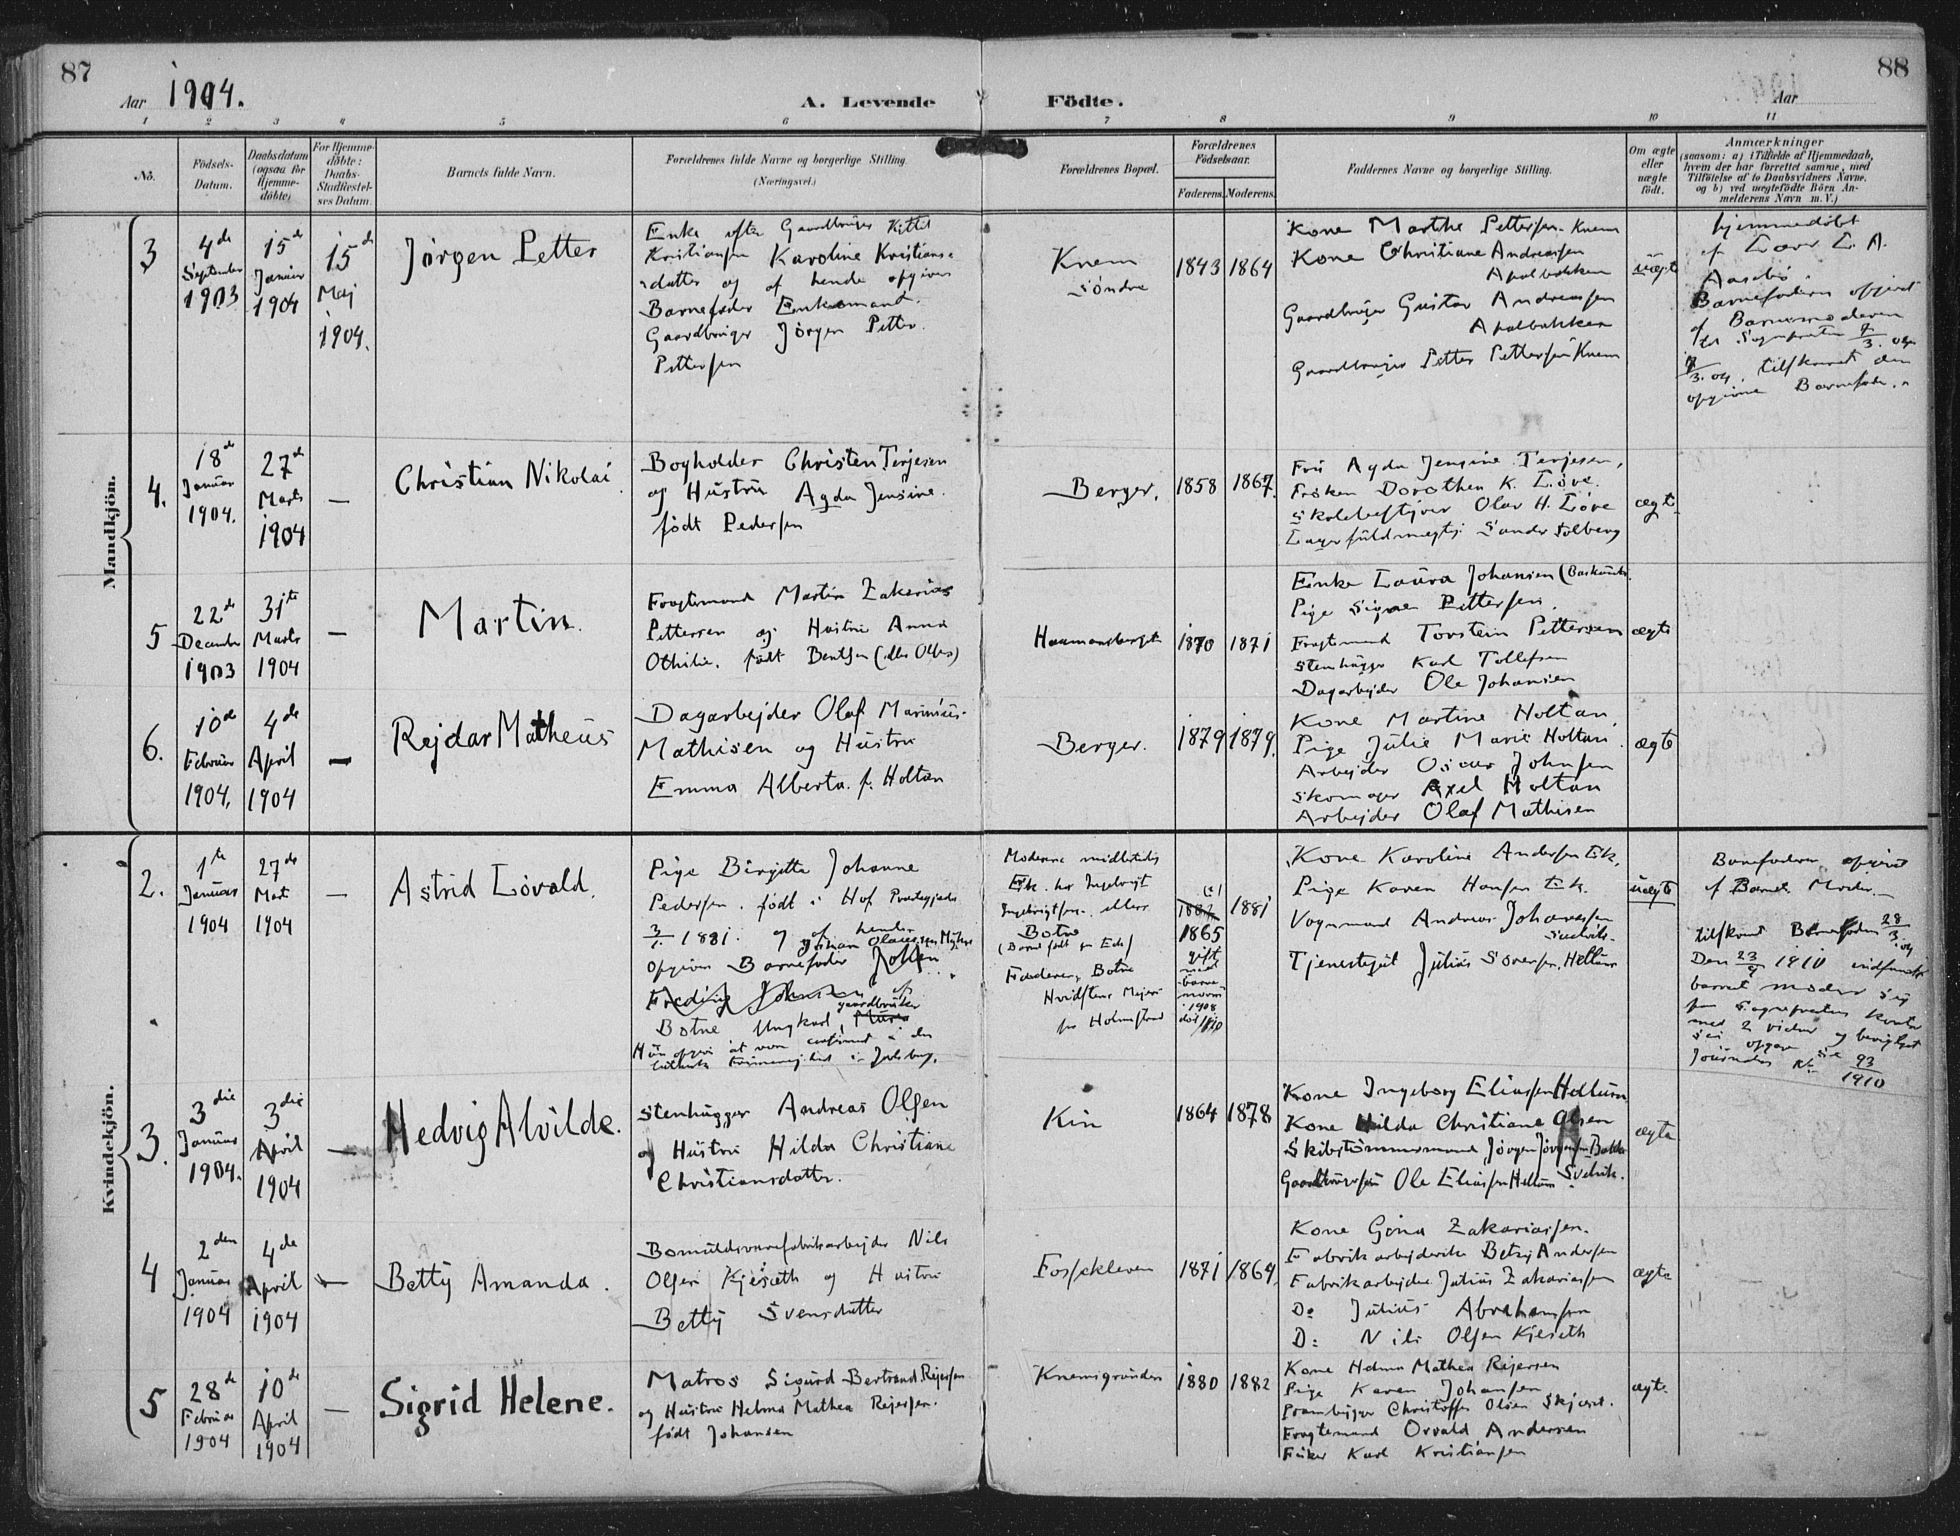 87
Aar 1904.
A. Levende
Födte.
Aar
88
1
2
3
4
5
6
7
8
9
10
11
No.
Födsels-
Datum.
Daabsdatum
(ogsaa for
Hjemme-
döbte)
For Hjemme-
döbte:
Daabs-
Stadfæstel-
ses Datum.
Barnets fulde Navn.
Forældrenes fulde Navne og borgerlige Stilling
(Næringsvei.)
Forældrenes Bopæl.
Forældrenes
Födselsaar.
Faderens.
Moderens.
Faddernes Navne og borgerlige Stilling.
Om ægte
eller
uægte
födt.
Anmærkninger
(saasom: a) i Tilfælde af Hjemmedaab,
hvem der har forrettet samme, med
Tilföielse af to Daabsvidners Navne,
og b) ved uægtefödte Börn An-
melderens Navn m. V.)
Mandkjön.
3
4de
September
1903
15de
Januar
1904
15de
Maj
1904.
Jörgen Petter
Enke efter Gaardbruger Kittil
Kristiansen Karoline Kristians-
datter og af hende opgiven
Barnefader Enkemand.
Gaardbruger Jörgen Petter
Pettersen
Knem
Söndre
1843
1864
Kone Marthe Pettersen Knem
Kone Christiane Andreassen
Apalbakken
Gaardbruger Gustav Andreassen
Apalbakken
Gaardbruger Petter Pettersen Knem
uægte
hjemmedöbt
af Lærer L. A.
Aasebö.
Barnefaderen opgivet
af Barnemoderen
til Sognepræsten
tilskrevet den
opgivne Barnefader.
4.
18de
Januar
1904.
27de
Marts
1904
—
Christian Nikolai
Bogholder Christen Terjesen
og Hustru Agda Jensine.
födt Pedersen
Berger.
1858
1867.
Fru Agda Jensine Terjesen,
Fröken Dorothea K. Löve.
Skolebestyrer Olav H. Löve
Lagerfuldmægtig Sander Solberg
ægte
5
22de
December
1903
31te
Marts
1904
—
Martin.
Fragtemand Martin Zakarias
Pettersen og Hustru Anna
Othilie. födt Bentsen (eller Olsen)
Haamansberget
1870
1871
Enke Laura Johansen
Pige Signe Pettersen.
Fragtmand Torstein Pettersen
Stenhugger Karl Tollefsen
Dagarbejder Ole Johansen
ægte
6.
10de
Februar
1904.
4de
April
1904
—
Rejdar Matheus
Dagarbejder Olaf Marinius
Mathisen og Hustru
Emma Alberta f. Holtan
Berger.
1879
1879.
Kone Martine Holtan.
Pige Julie Marie Holtan.
Arbejder Oscar Johnsen
Skomager Axel Holtan
Arbejder Olaf Mathisen
ægte
Kvindekjön.
2.
1te
Januar
1904
27de
Mart
1904
—
Astrid Lövald.
Pige Birgitte Johanne
Pedersen. födt i Hof Præstegjeld
1881. og af hende
opgiven Barnefader Johan
Fredrig Johnsen af
gaardbruker
Botne Ungkarl,
Hun opgiver at være confirmeret i den
Moderen midlertidig
Ek. hos Ingebrigt
Ingebrigtsen. ellers
Botne
(Barnet födt paa Ek)
Faderen, Botne
Hvidstens Mejeri
pr Holmestrand
1865
gift
med
barne-
moren
1908
1881
Kone Karoline Andersen Ek.
Pige Karen Hansen Ek.
Vognmand Andreas Johansen
Svelvik.
Tjenestegut Julius Sörensen, Hellum
uægte
Barnefaderen opgivet
af Barnets Moder.—
tilskrevet Barnefaderen 28/3.04
Den 23/9 1910 indfandt
barnets moder sig
paa Sognepræstens Kontor
med 2 vidner og
Journalen No 93/1910
3.
3die
Januar
1904.
3die
April
1904
—
Hedvig Alvilde.
Stenhugger Andreas Olsen
og Hustru Hilda Christiane
Christiansdatter.
Kin
1864
1878
Kone Ingeborg Eliassen Hellum
Kone Hilda Christiane Olsen
Skibstömmermand Jörgen Jörgensen Bakke
Svelvik.
Gaardbrugersön Ole Eliassen Hellum
ægte
4
2den
Januar
1904
4de
April
1904
—
Betty Amanda.
Bomuldsvarefabrikarbejder Nils
Olsen Kjeseth og Hustru
Betty Svensdatter
Fossekleven
1871
1869.
Kone Gina Zakariassen.
Fabrikarbejderske Betzy Andersen
Fabrikarbejder Julius Zakariassen
Do Julius Abrahamsen
Do Nils Olsen Kjeseth
ægte
5
28de
Februar
1904
10de
April
1904
—
Sigrid Helene.
Matros Sigurd Bertrand Rejersen
og Hustru Helma Mathea Rejersen.
födt Johansen
Knemsgrunden
1880
1882
Kone Helma Mathea Rejersen
Pige Karen Johansen
Prambygger Christoffer Olsen Skjæret.
Fragtemand Osvald Andersen
Fisker Karl Kristiansen
ægte